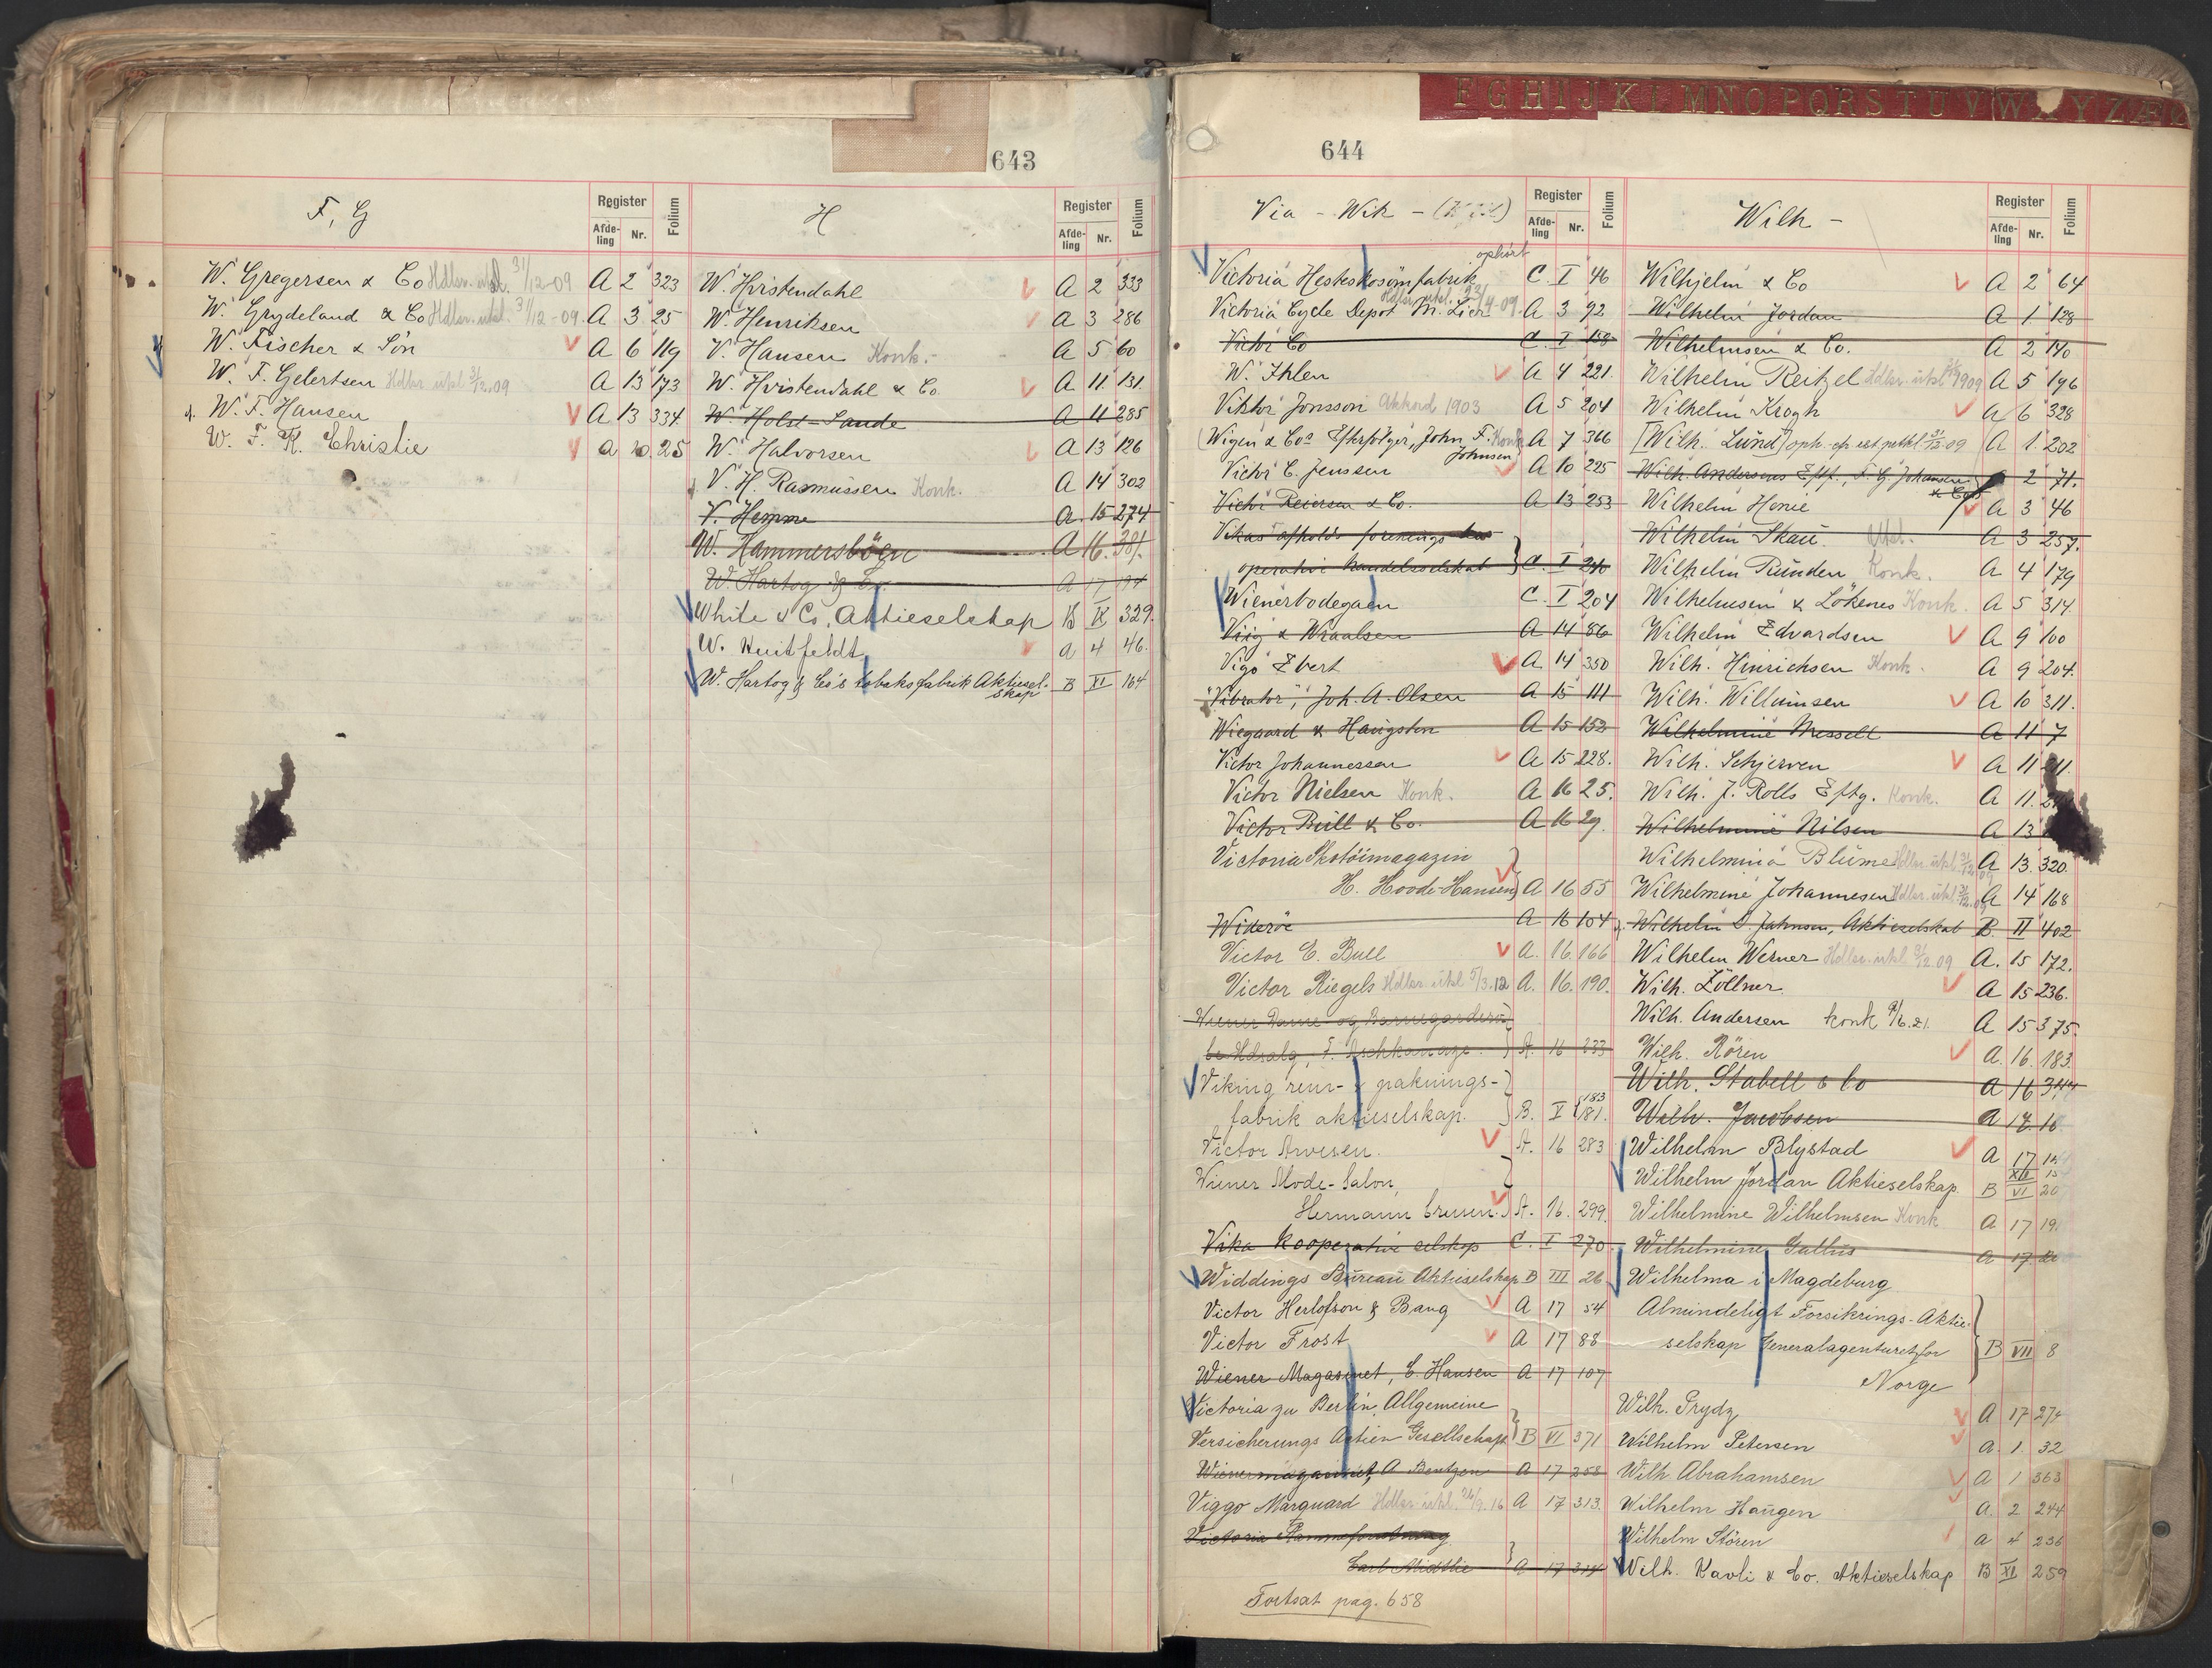 643
F, G
Register
Afde-
ling
Nr.
Folium
W. Gregersen & Co Hdlsr. utsl. 31/12-09 A 2 323
W. Grydeland & Co Hdlsr. utsl. 31/12-09. A 3 25
W. Fischer & Sön A 6 119
W. F. Gelertsen Hdlsr. utsl 31/12.09 A 13 173
W. F. Hansen A 13 334.
W. F. K. Christie A 10. 25
H
Register
Afde-
ling
Nr.
Folium
W. Hvistendahl A 2 333
W. Henriksen A 3 286
V. Hansen Konk. A 5 60
W. Hvistendahl & Co. A 11. 131.
W. Holst-Sande A 11 285
W. Halvorsen A 13 126
V. H. Rasmussen Konk. A 14 302
V. Hemme A. 15 274
W. Hammersbögn A 16. 381.
W. Hartog & Co. A 17 194
White & Co, Aktieselskap B IX 329.
W. Huitfeldt A 4 46.
W. Hartog & Co's tobaksfabrik Aktiesel- B XI 164
skap
F G H I J K L M N O P Q R S T U V W Y Z Æ
644
Via - Wik -
Register
Afde-
ling
Nr.
Folium
ophört
Victoria Hesteskosömfabrik C. I 46
Hdlsr. utsl.
Victoria Cycle Depot M. Lien A 3 92
Victor Co C. I 158
W. Ihlen A 4 221.
Viktor Jonsson Akkord 1903 A 5 204
(Wigen & Co's Efterfølger, John F. Konk A 7 366
Johnsen
Victor C. Jenssen A 10 225
Victor Reiersen & Co. A 13 253
Vikas afholds forenings
operative handelsselskab C. I 240
Wienerbodegaen C. I 204
Viig & Wraalsen A 14 86
Vigo Ebert A 14 350
"Vibrator", Joh. A. Olsen A 15 111
Wiegaard & Haugsten A 15 153
Victor Johannessen A 15 228.
Victor Nielsen Konk. A 16 25.
Victor Bull & Co. A 16 29.
Victoria Skotöimagazin
H. Hoode-Hansen A 16 55
Wideröe A 16 104
Victor E. Bull A. 16. 166
Victor Riegels Hdlsr. utsl 5/3.12 A. 16. 190.
Wiener Dame- og Barnegardero-
be Udsalg, A. 16 233
Viking rem- & paknings-
183
fabrik aktieselskap. B. V 181.
Victor Arvesen. A. 16 283
Wiener Mode-Salon,
Hermann A. 16. 299.
Vika kooperative selskap C. I 270.
Widdings Bureau Aktieselskap B III 26
Victor Herlofson & Bang A 17 54
Victor Frost A 17 88
Wiener Magasinet, C. Hansen A 17 107
Victoria zu Berlin Allgemeine
Versicherungs Actien Gesellschaft B VI 371
Wienermagasinet, A Bentzen A 17 258
Viggo Marquard Hdlsr. utsl. A 17 313.
Victoria
Carl Midtlie A 17 314
Fortsat pag. 658
Wilh -
Register
Afde-
ling
Nr.
Folium
Wilhjelm & Co A 2 64
Wilhelm Jordan A 1. 128
Wilhelmsen & Co. A 2 140
Wilhelm Reitzel Hdlsr. utsl. 1909 A 5 196
Wilhelm Krogh A 6 328
[Wilh. Lund] oph. 31/12-09 A 1. 202
Wilh. Andersens Eftf., F. G. Johansen A 2 71.
& Co
Wilhelm Henie A 3 46
Wilhelm Skau. Utsl. A 3 257.
Wilhelm Runden Konk. A 4 179
Wilhelmsen & Lökenes Konk. A 5 314.
Wilhelm Edvardsen A 9 100
Wilh. Hinrichsen Konk. A 9 204.
Wilh. Willumsen A 10 311.
Wilhelmine Messell A 11 7
Wilh. Schjerven A 11
Wilh. J. Rolls Eftg. Konk. A 11.
Wilhelmine Nilsen A 13
Wilhelmina Blume Hdlsr. utsl. 31/12.09 A 13. 320.
Wilhelmine Johannesen Hdlsr. utsl. 31/12.09 A 14 168
Wilhelm S. Johnsen, Aktieselskab B. II 402
Wilhelm Werner Hdlsr. utsl. 31/12 09 A. 15 172.
Wilh. Zöllner. A 15 236.
Wilh. Andersen konk 9/6.21. A 15 375.
Wilh. Rören A. 16. 183.
Wilh. Stabell & Co A 16 344
Wilh. Jacobsen A 17. 18
Wilhelm Blystad A 17
XIII
Wilhelm Jordan Aktieselskap. B VI 20
Wilhelmine Wilhelmsen Konk A 17 19
Wilhelmine Gullus A 17
Wilhelma i Magdeburg
Almindeligt Forsikrings-Aktie-
selskap Generalagenturet for B VII 8
Norge
Wilh. Prydz A 17 274
Wilhelm Petersen A. 1. 32
Wilh. Abrahamsen A 1 363
Wilhelm Haugen A. 2 244
Wilhelm Stören A 4 236
Wilh. Kavli & Co. Aktieselskap B XI 259